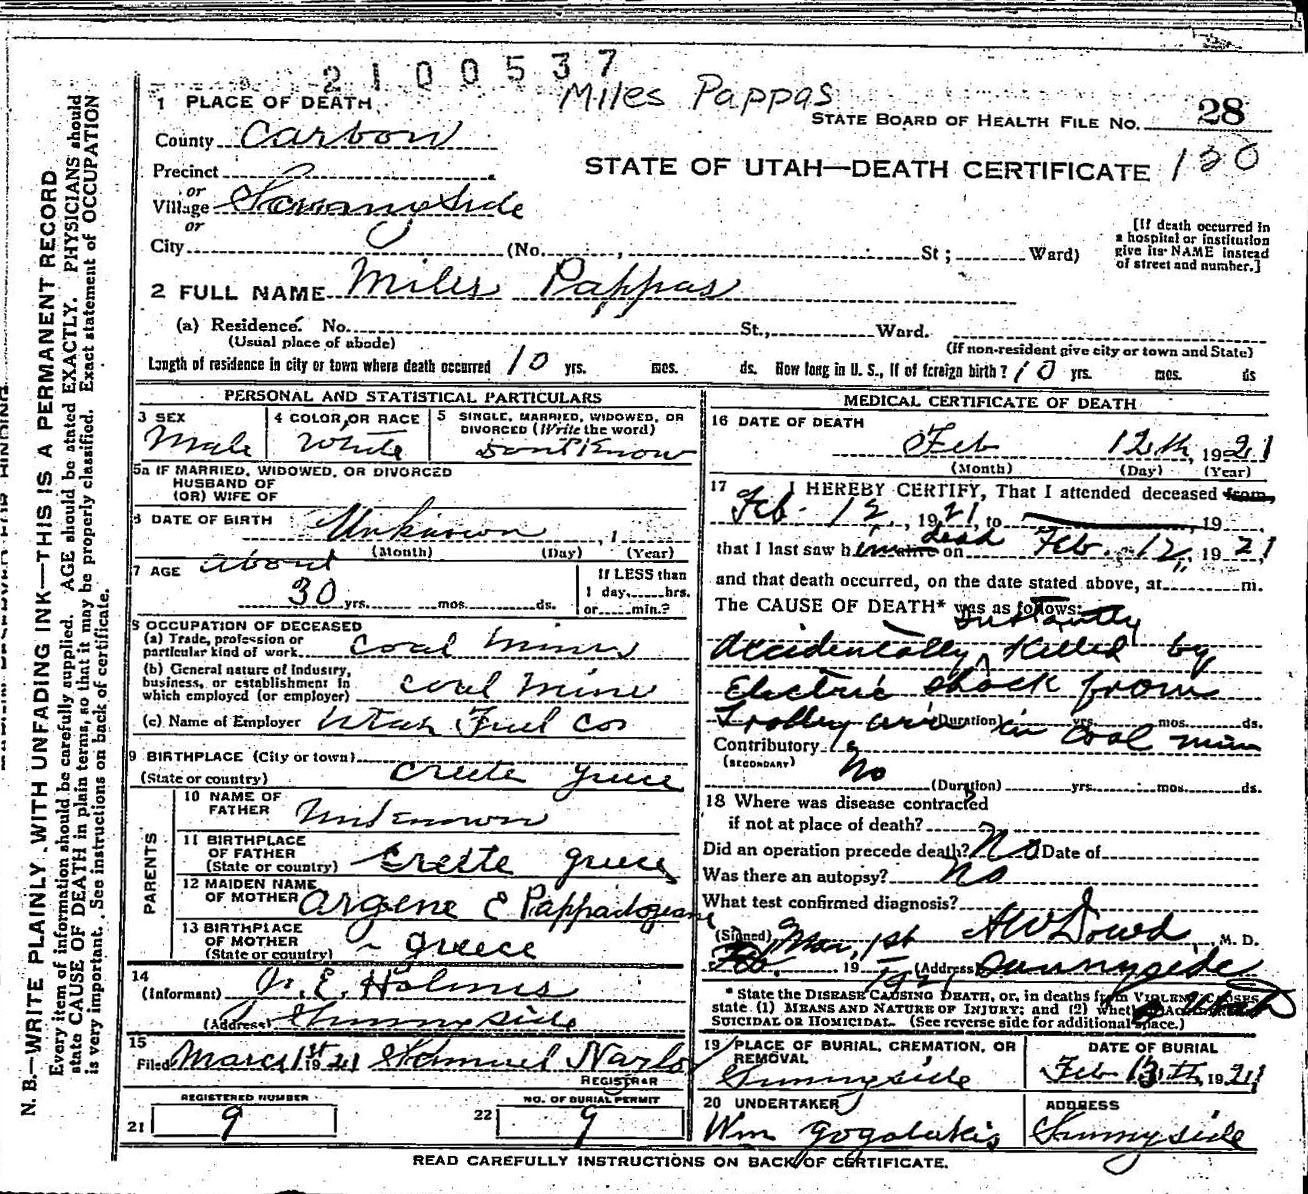 2100537
Miles Pappas
1 PLACE OF DEATH
STATE BOARD OF HEALTH FILE NO. 28
County Carbon
STATE OF UTAH—DEATH CERTIFICATE 120
Precinct
or
Village Sunnyside
or
City (No. , St ; Ward)
[If death occurred in
a hospital or institution
give its NAME instead
of street and number.]
2 FULL NAME Miles Pappas
(a) Residence. No. St., Ward.
(Usual place of abode)
(If non-resident give city or town and State)
Length of residence in city or town where death occurred 10 yrs. mos. ds. How long in U. S., if of foreign birth? 10 yrs. mos. ds
PERSONAL AND STATISTICAL PARTICULARS
3 SEX
Male
4 COLOR OR RACE
White
5 SINGLE, MARRIED, WIDOWED, OR
DIVORCED (Write the word)
Dont Know
5a IF MARRIED, WIDOWED, OR DIVORCED
HUSBAND OF
(OR) WIFE OF
6 DATE OF BIRTH Unknown , 1
(Month) (Day) (Year)
7 AGE about
30 yrs. mos. ds.
If LESS than
1 day, hrs.
or min.?
8 OCCUPATION OF DECEASED
(a) Trade, profession or
particular kind of work Coal Miner
(b) General nature of industry,
business, or establishment in
which employed (or employer) Coal Mine
(c) Name of Employer Utah Fuel Co
9 BIRTHPLACE (City or town)
(State or country) Creete Greece
PARENTS
10 NAME OF
FATHER Unknown
11 BIRTHPLACE
OF FATHER
(State or country) Creete Greece
12 MAIDEN NAME
OF MOTHER Argene E
13 BIRTHPLACE
OF MOTHER
(State or country) Greece
14
(Informant) E. Holmes
(Address) Sunnyside
15
Filed March 1st 1921 Samuel
REGISTRAR
REGISTERED NUMBER
21 9
NO. OF BURIAL PERMIT
22 9
MEDICAL CERTIFICATE OF DEATH
16 DATE OF DEATH
Feb 12th, 1921
(Month) (Day) (Year)
17 I HEREBY CERTIFY, That I attended deceased from,
Feb. 12, 1921, to 19
that I last saw him alive on dead Feb. 12, 1921
and that death occurred, on the date stated above, at m.
The CAUSE OF DEATH* was as follows:
Instantly
Accidentally Killed by
Electric shock from
Trolley wire in Coal mine
(Duration) yrs. mos. ds.
Contributory
(SECONDARY) No
(Duration) yrs. mos. ds.
18 Where was disease contracted
if not at place of death?
Did an operation precede death? No Date of
Was there an autopsy? No
What test confirmed diagnosis?
(Signed) A W Dowd, M. D.
Feb. Mar, 1st 19 1921 (Address) Sunnyside
Utah
* State the DISEASE CAUSING DEATH, or, in deaths from VIOLENT CAUSES
state (1) MEANS AND NATURE OF INJURY; and (2) whether ACCIDENTAL,
SUICIDAL OR HOMICIDAL. (See reverse side for additional space.)
19 PLACE OF BURIAL, CREMATION, OR
REMOVAL
Sunnyside
DATE OF BURIAL
Feb 13th, 1921
20 UNDERTAKER
Wm Gogalakis
ADDRESS
Sunnyside
READ CAREFULLY INSTRUCTIONS ON BACK OF CERTIFICATE.
N. B.—WRITE PLAINLY, WITH UNFADING INK—THIS IS A PERMANENT RECORD
Every item of information should be carefully supplied. AGE should be stated EXACTLY. PHYSICIANS should
state CAUSE OF DEATH in plain terms, so that it may be properly classified. Exact statement of OCCUPATION
is very important. See instructions on back of certificate.